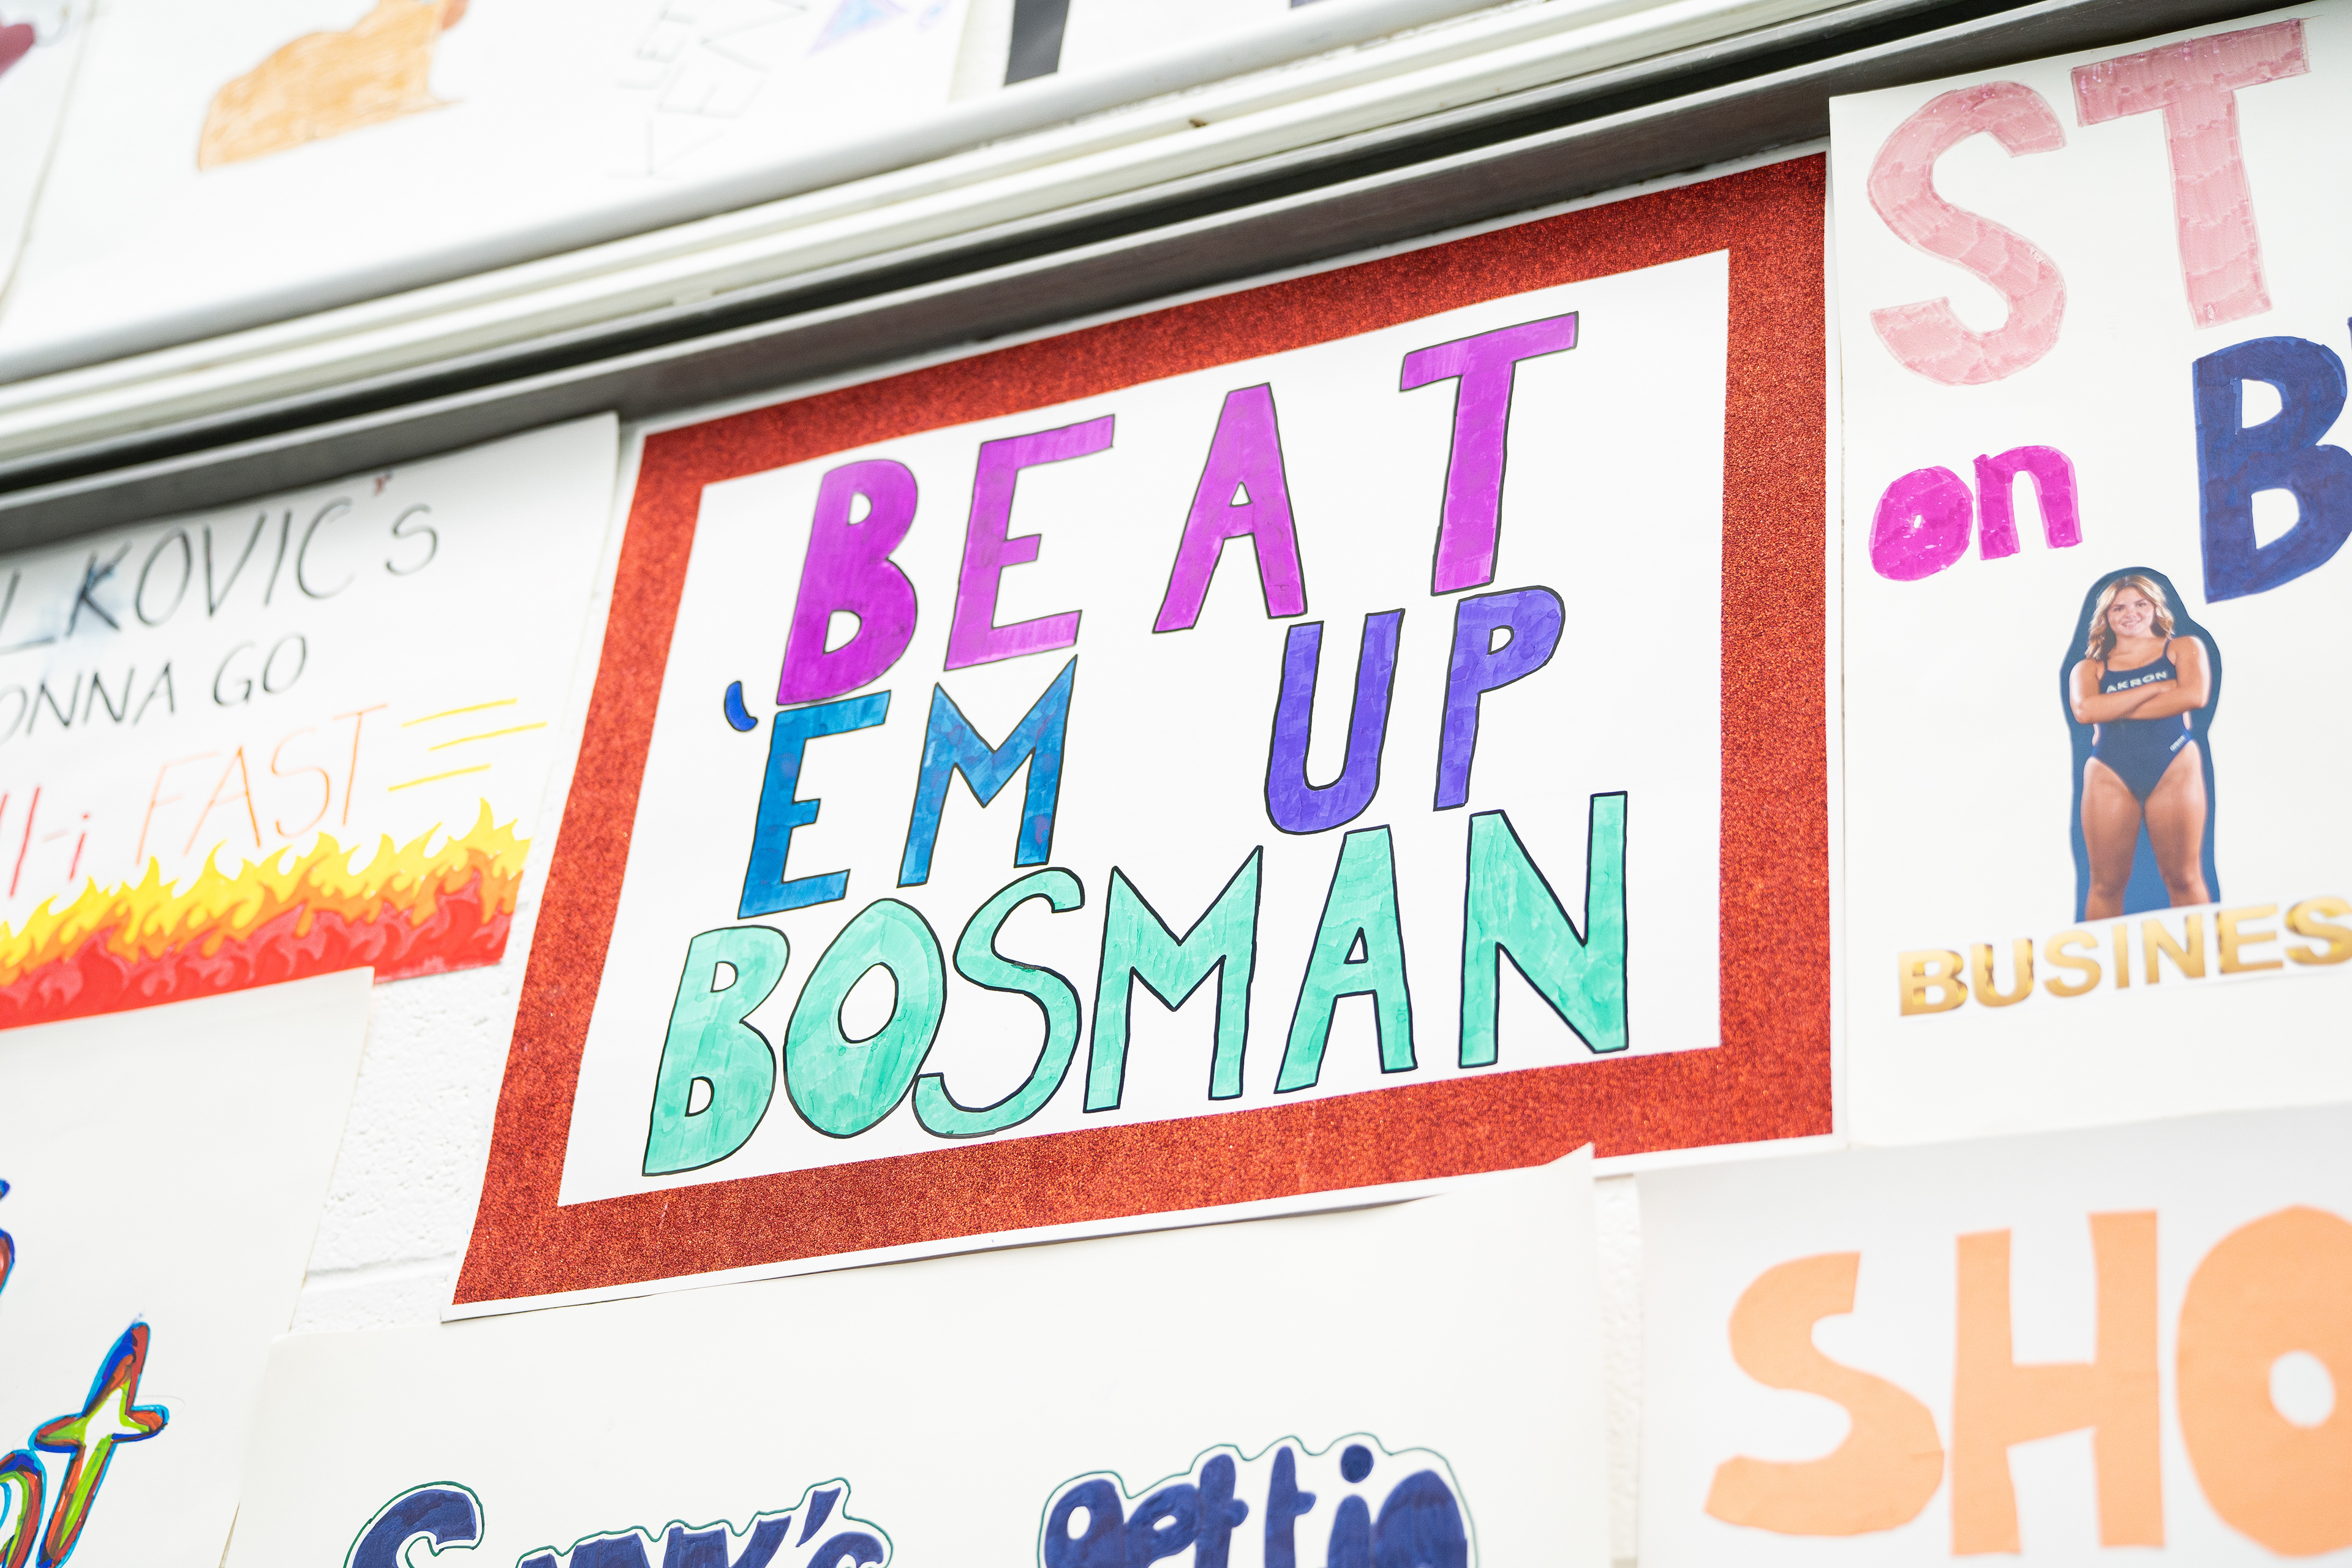 LKOVIC's
ONNA GO
FAST
BEAT
'EM UP
BOSMAN
ST
on B
AKRON
BUSINES
SHO
gettin